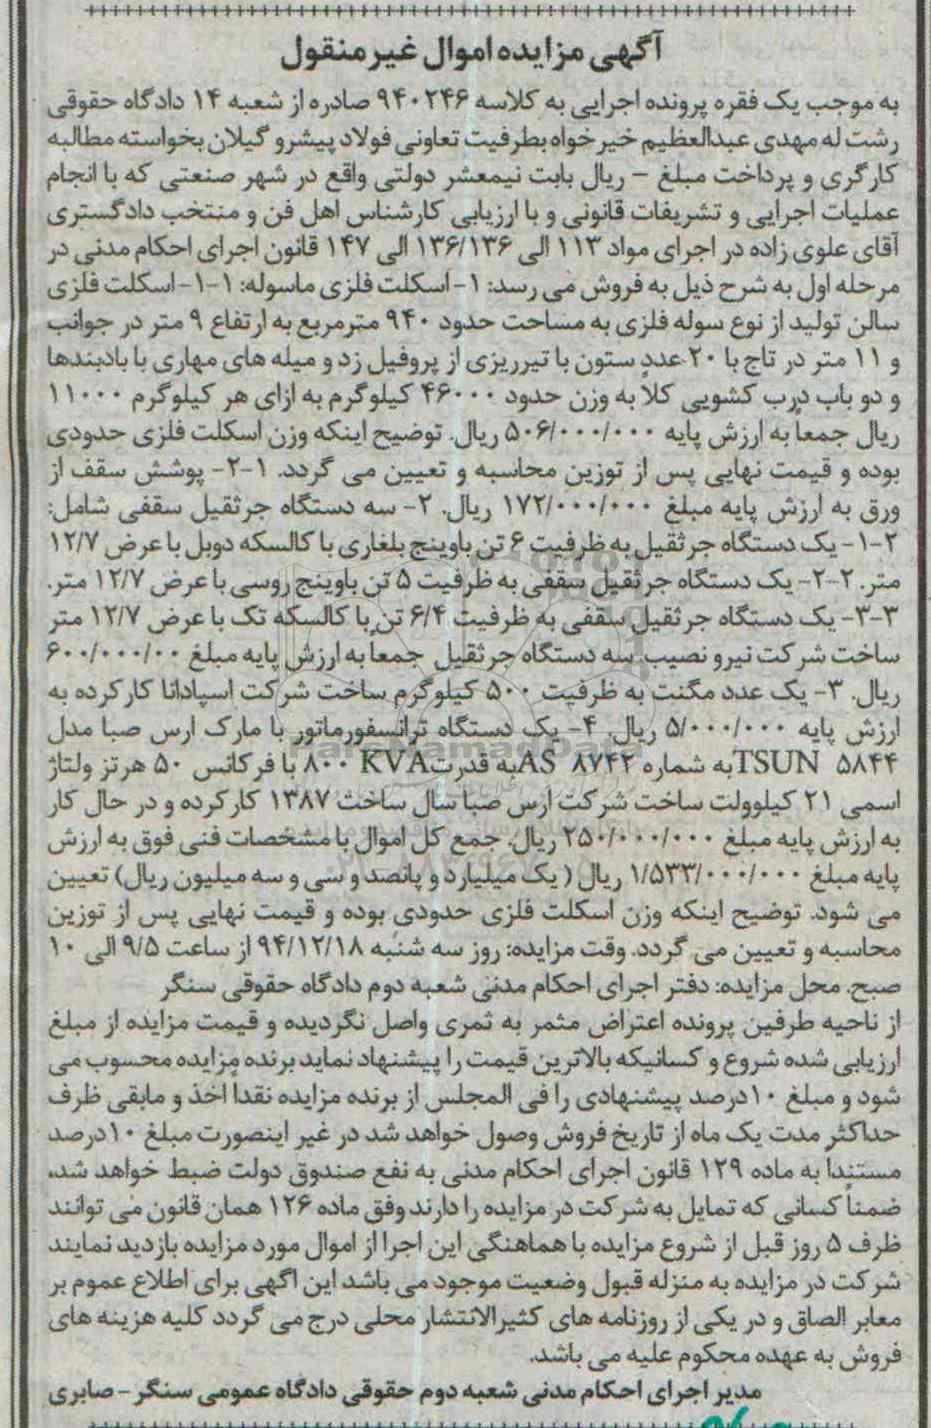 آگهی مزایده اموال غیرمنقول
به موجب یک فقره پرونده اجرایی به کلاسه ۹۴۰۲۴۶ صادره از شعبه ۱۴ دادگاه حقوقی
رشت له مهدی عبدالعظیم خیرخواه بطرفیت تعاونی فولاد پیشرو گیلان بخواسته مطالبه
کارگری و پرداخت مبلغ - ریال بابت نیمعشر دولتی واقع در شهر صنعتی که با انجام
عملیات اجرایی و تشریفات قانونی و با ارزیابی کارشناس اهل فن و منتخب دادگستری
آقای علوی زاده در اجرای مواد ۱۱۳ الی ۱۳۶/۱۳۶ الی ۱۴۷ قانون اجرای احکام مدنی در
مرحله اول به شرح ذیل به فروش می رسد: ۱-اسکلت فلزی ماسوله: ۱-۱-اسکلت فلزی
سالن تولید از نوع سوله فلزی به مساحت حدود ۹۴۰ مترمربع به ارتفاع ۹ متر در جوانب
و ۱۱ متر در تاج با ۲۰ عدد ستون با تیرریزی از پروفیل زد و میله های مهاری با بادبندها
و دو باب درب کشویی کلا به وزن حدود ۴۶۰۰۰ کیلوگرم به ازای هر کیلوگرم ۱۱۰۰۰
ریال جمعاً به ارزش پایه ۵۰۶/۰۰۰/۰۰۰ ریال. توضیح اینکه وزن اسکلت فلزی حدودی
بوده و قیمت نهایی پس از توزین محاسبه و تعیین می گردد. ۱-۲- پوشش سقف از
ورق به ارزش پایه مبلغ ۱۷۲/۰۰۰/۰۰۰ ریال. ۲- سه دستگاه جرثقیل سقفی شامل:
۲-۱- یک دستگاه جرثقیل به ظرفیت ۶ تن باوینچ بلغاری با کالسکه دوبل با عرض ۱۲/۷
متر. ۲-۲- یک دستگاه جرثقیل سقفی به ظرفیت ۵ تن باوینچ روسی با عرض ۱۲/۷ متر.
۳-۳- یک دستگاه جرثقیل سقفی به ظرفیت ۶/۴ تن با کالسکه تک با عرض ۱۲/۷ متر
ساخت شرکت نیرو نصیب. سه دستگاه جرثقیل جمعاً به ارزش پایه مبلغ ۶۰۰/۰۰۰/۰۰
ریال. ۳- یک عدد مگنت به ظرفیت ۵۰۰ کیلوگرم ساخت شرکت اسپادانا کارکرده به
ارزش پایه ۵/۰۰۰/۰۰۰ ریال. ۴- یک دستگاه ترانسفورماتور با مارک ارس صبا مدل
TSUN ۵۸۴۴ به شماره AS ۸۷۴۲ به قدرت ۸۰۰ KVA با فرکانس ۵۰ هرتز ولتاژ
اسمی ۲۱ کیلوولت ساخت شرکت ارس صبا سال ساخت ۱۳۸۷ کارکرده و در حال کار
به ارزش پایه مبلغ ۲۵۰/۰۰۰/۰۰۰ ریال. جمع کل اموال با مشخصات فنی فوق به ارزش
پایه مبلغ ۱/۵۳۳/۰۰۰/۰۰۰ ریال (یک میلیارد و پانصد و سی و سه میلیون ریال) تعیین
می شود. توضیح اینکه وزن اسکلت فلزی حدودی بوده و قیمت نهایی پس از توزین
محاسبه و تعیین می گردد. وقت مزایده: روز سه شنبه ۹۴/۱۲/۱۸ از ساعت ۹/۵ الی ۱۰
صبح. محل مزایده: دفتر اجرای احکام مدنی شعبه دوم دادگاه حقوقی سنگر
از ناحیه طرفین پرونده اعتراض مثمر به ثمری واصل نگردیده و قیمت مزایده از مبلغ
ارزیابی شده شروع و کسانیکه بالاترین قیمت را پیشنهاد نماید برنده مزایده محسوب می
شود و مبلغ ۱۰درصد پیشنهادی را فی المجلس از برنده مزایده نقدا اخذ و مابقی ظرف
حداکثر مدت یک ماه از تاریخ فروش وصول خواهد شد در غیر اینصورت مبلغ ۱۰درصد
مستنداً به ماده ۱۲۹ قانون اجرای احکام مدنی به نفع صندوق دولت ضبط خواهد شد،
ضمناً کسانی که تمایل به شرکت در مزایده را دارند وفق ماده ۱۲۶ همان قانون می توانند
ظرف ۵ روز قبل از شروع مزایده با هماهنگی این اجرا از اموال مورد مزایده بازدید نمایند
شرکت در مزایده به منزله قبول وضعیت موجود می باشد این آگهی برای اطلاع عموم بر
معابر الصاق و در یکی از روزنامه های کثیرالانتشار محلی درج می گردد کلیه هزینه های
فروش به عهده محکوم علیه می باشد.
مدیر اجرای احکام مدنی شعبه دوم حقوقی دادگاه عمومی سنگر - صابری